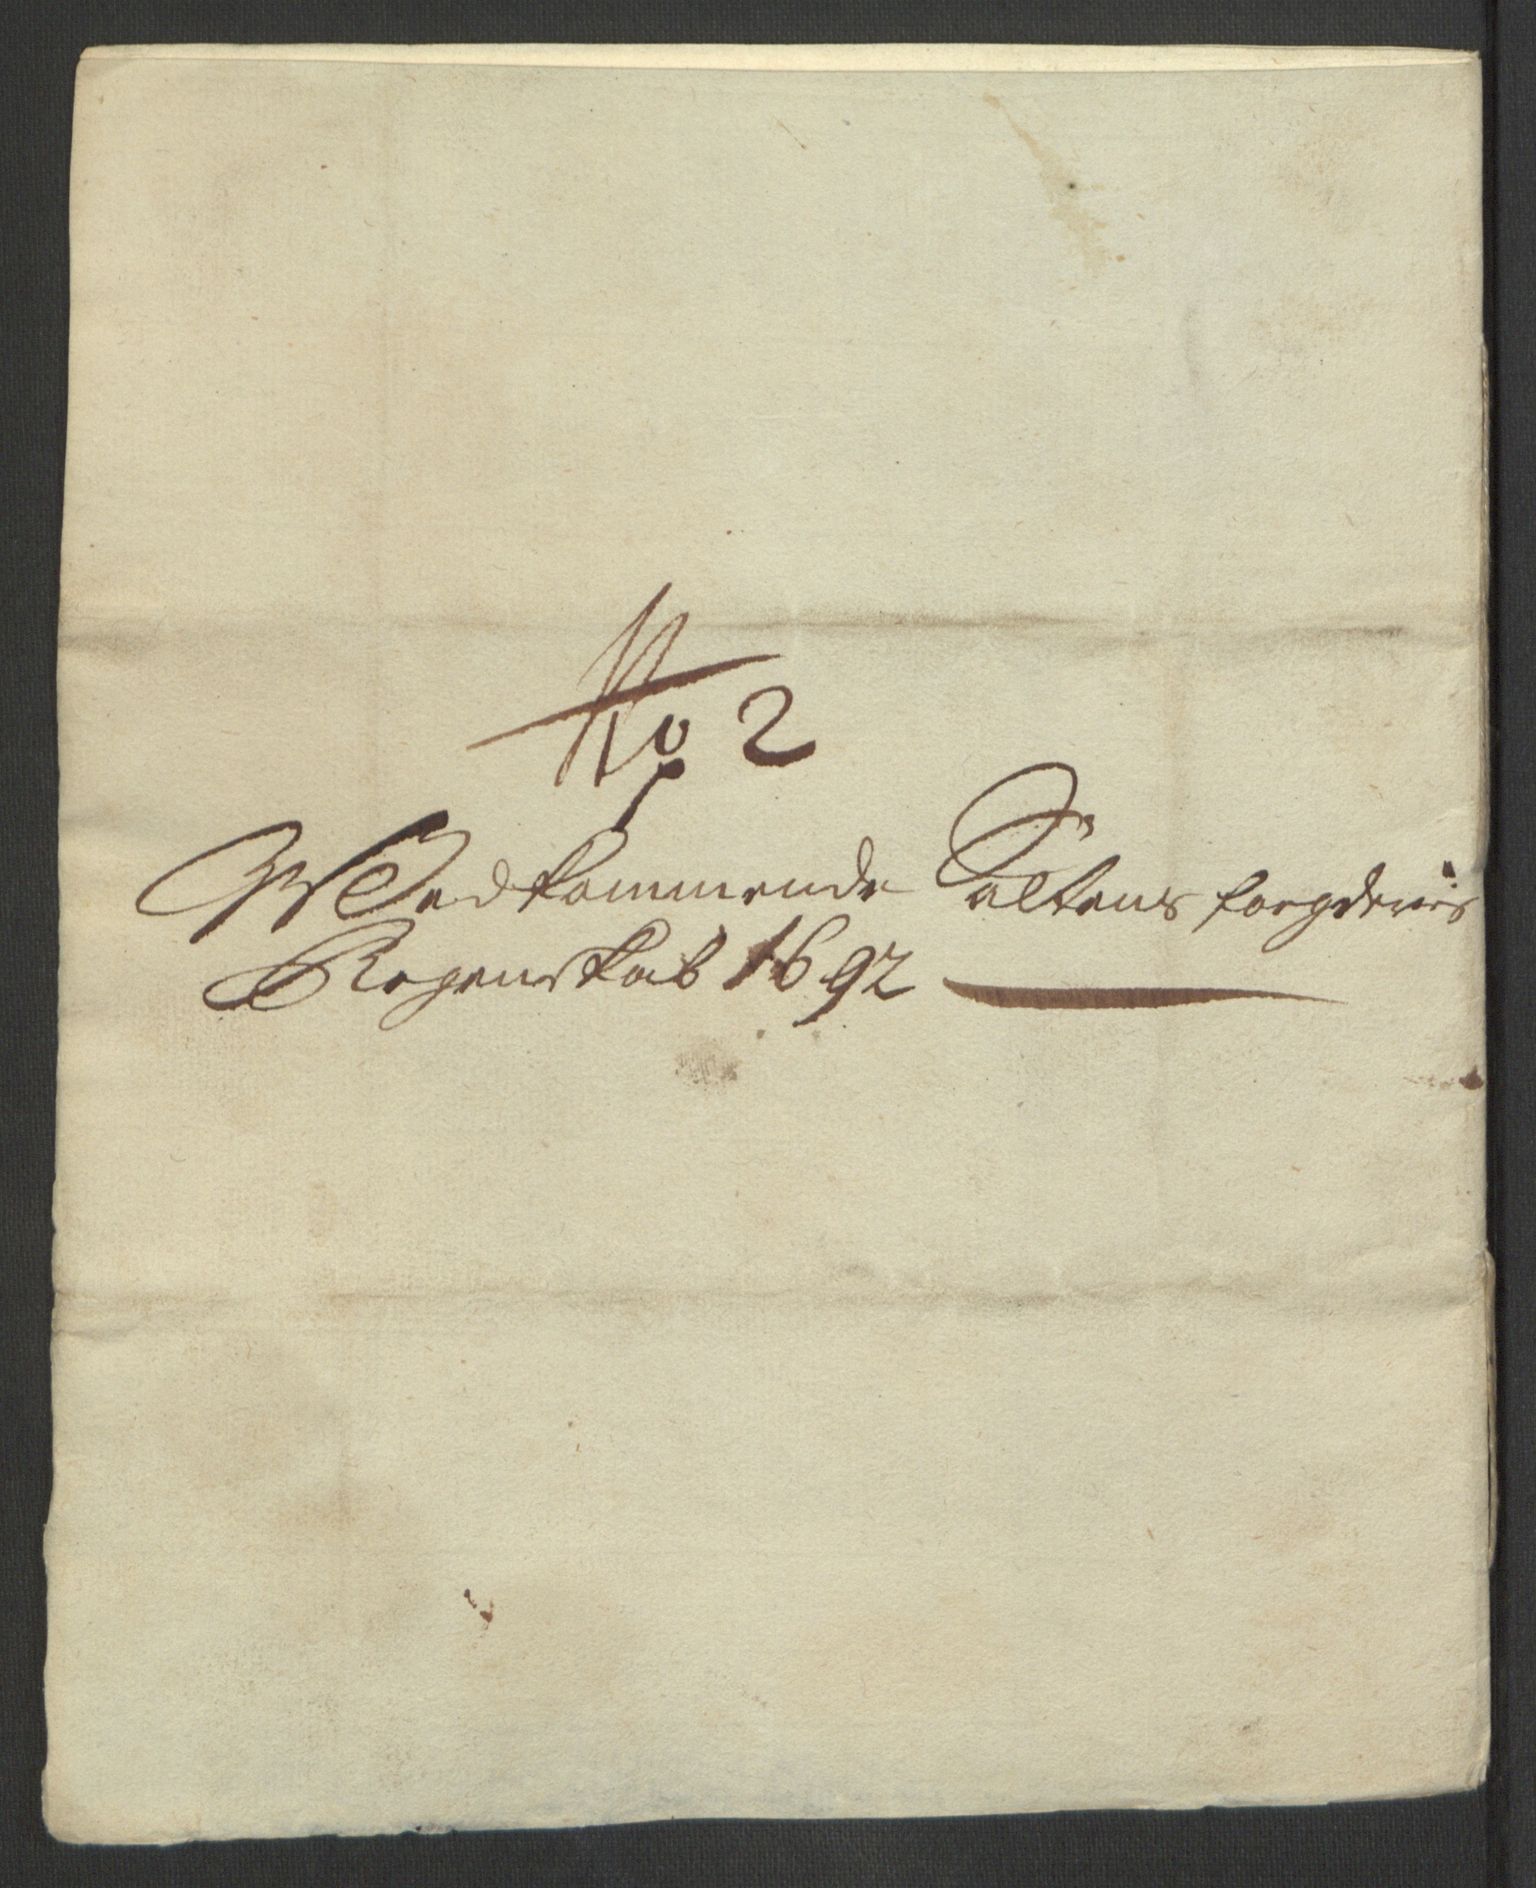 No 2
Wedkommende Saltens fogderies
Regenskab 1692